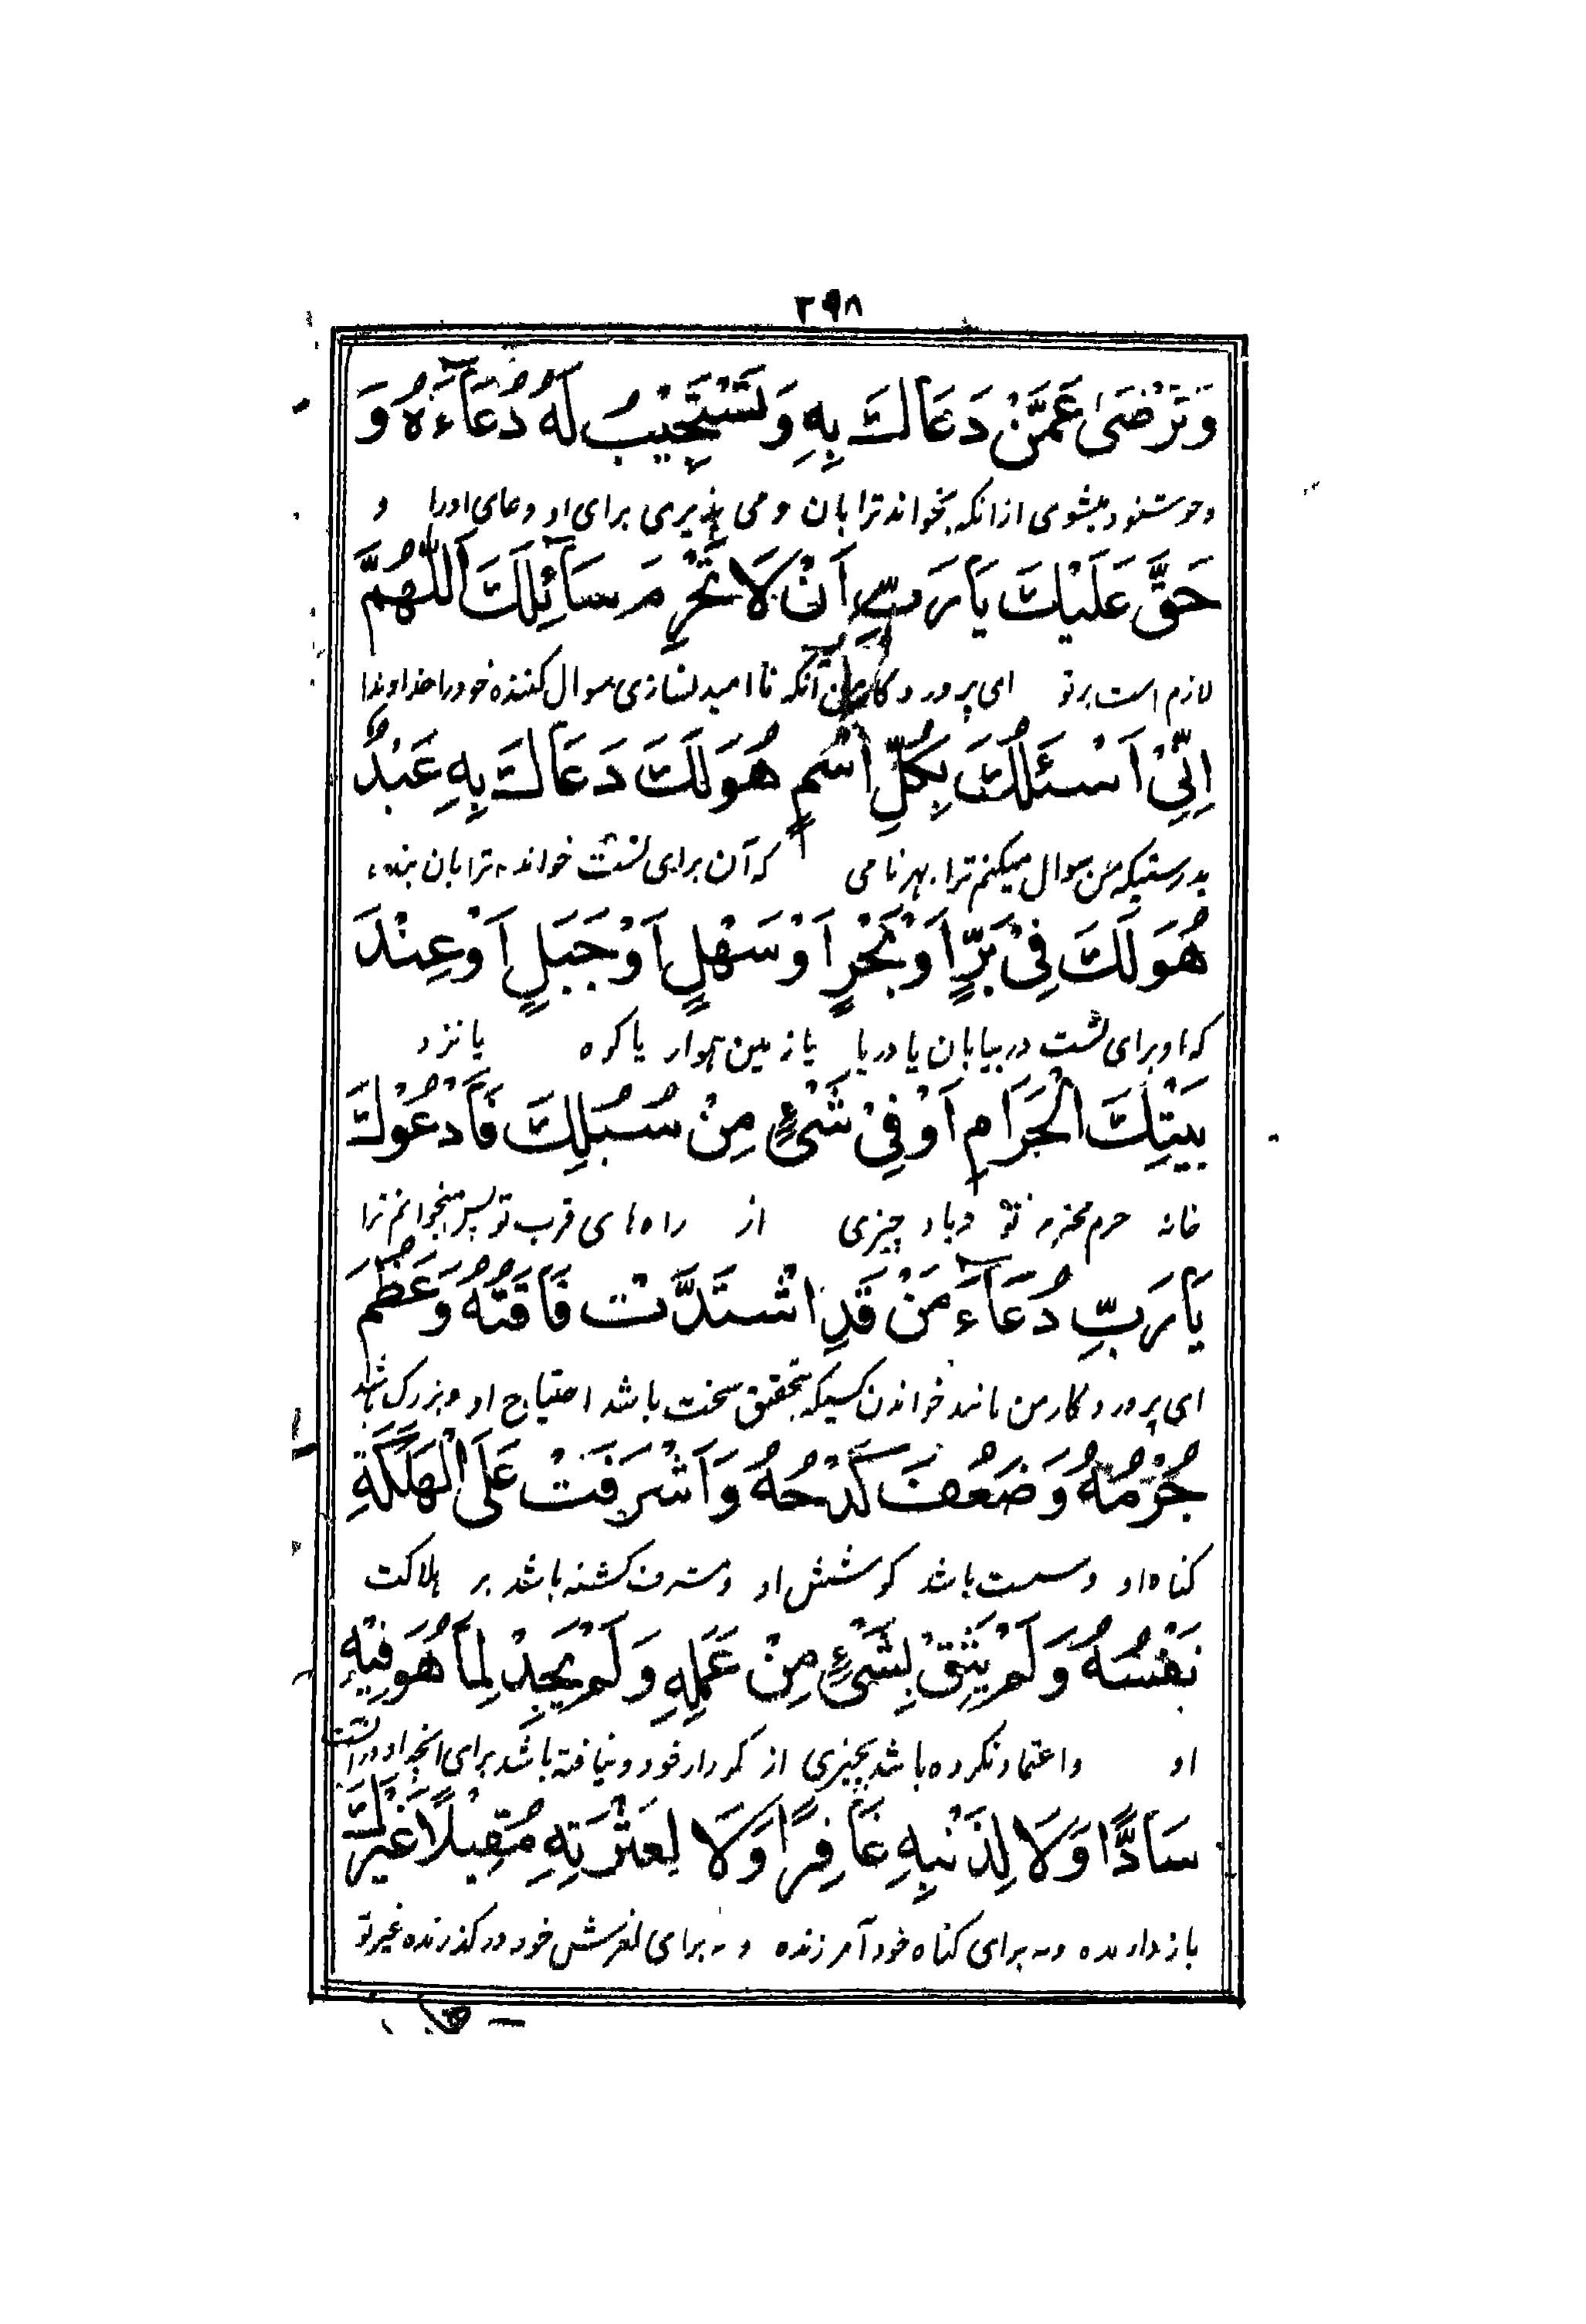 ٢٩٨
وَتَرْضَىٰ عَمَّنْ دَعَاكَ بِهِ وَتَسْتَجِيْبُ لَهُ دُعَآءَهُ وَ
وخوشنود میشوی ازانکه بخواند ترا بان ومی پذیری برای او دعای اورا و
حَقٌّ عَلَيْكَ يَا رَبِّ اَنْ لَا تَحْرِمَ سَآئِلَكَ اَللّٰهُمَّ
لازم است برتو ای پروردگار من آنکه نا امید نسازی سوال کننده خودرا خداوندا
اِنِّىْ اَسْئَلُكَ بِكُلِّ اسْمٍ هُوَ لَكَ دَعَاكَ بِهِ عَبْدٌ
بدرستیکه من سوال میکنم ترا بهر نامی که آن برای تست خوانده ترا بان بنده
هُوَ لَكَ فِىْ بَرٍّ اَوْ بَحْرٍ اَوْ سَهْلٍ اَوْ جَبَلٍ اَوْ عِنْدَ
که او برای تست در بیابان یا دریا یا زمین هموار یا کوه یا نزد
بَيْتِكَ الْحَرَامِ اَوْ فِىْ شَىْءٍ مِنْ سُبُلِكَ فَاَدْعُوْكَ
خانه حرم محترم تو چیزی از راه های قرب تو پس میخوانم ترا
يَا رَبِّ دُعَآءَ مَنْ قَدِ اشْتَدَّتْ فَاقَتُهُ وَعَظُمَ
ای پروردگار من مانند خواندن کسیکه بتحقیق سخت باشد احتیاج او وبزرگ باشد
جُرْمُهُ وَضَعُفَ كَدْحُهُ وَاَشْرَفَتْ عَلَى الْهَلَكَةِ
کناه او وسست باشد کوشش او ومشرف کشته باشد بر هلاکت
نَفْسُهُ وَلَمْ يَثِقْ بِشَىْءٍ مِنْ عَمَلِهِ وَلَمْ يَجِدْ لِمَا هُوَ فِيْهِ
او واعتماد نکرده باشد بچیزی از کردار خود ونیافته باشد برای انچه او دران است
سَادًّا وَلَا لِذَنْبِهِ غَافِرًا وَلَا لِعَثْرَتِهِ مُقِيْلًا غَيْرَكَ
باز دارنده ونه برای کناه خود آمرزنده و نه برای لغزش خود در گذرنده غیر تو